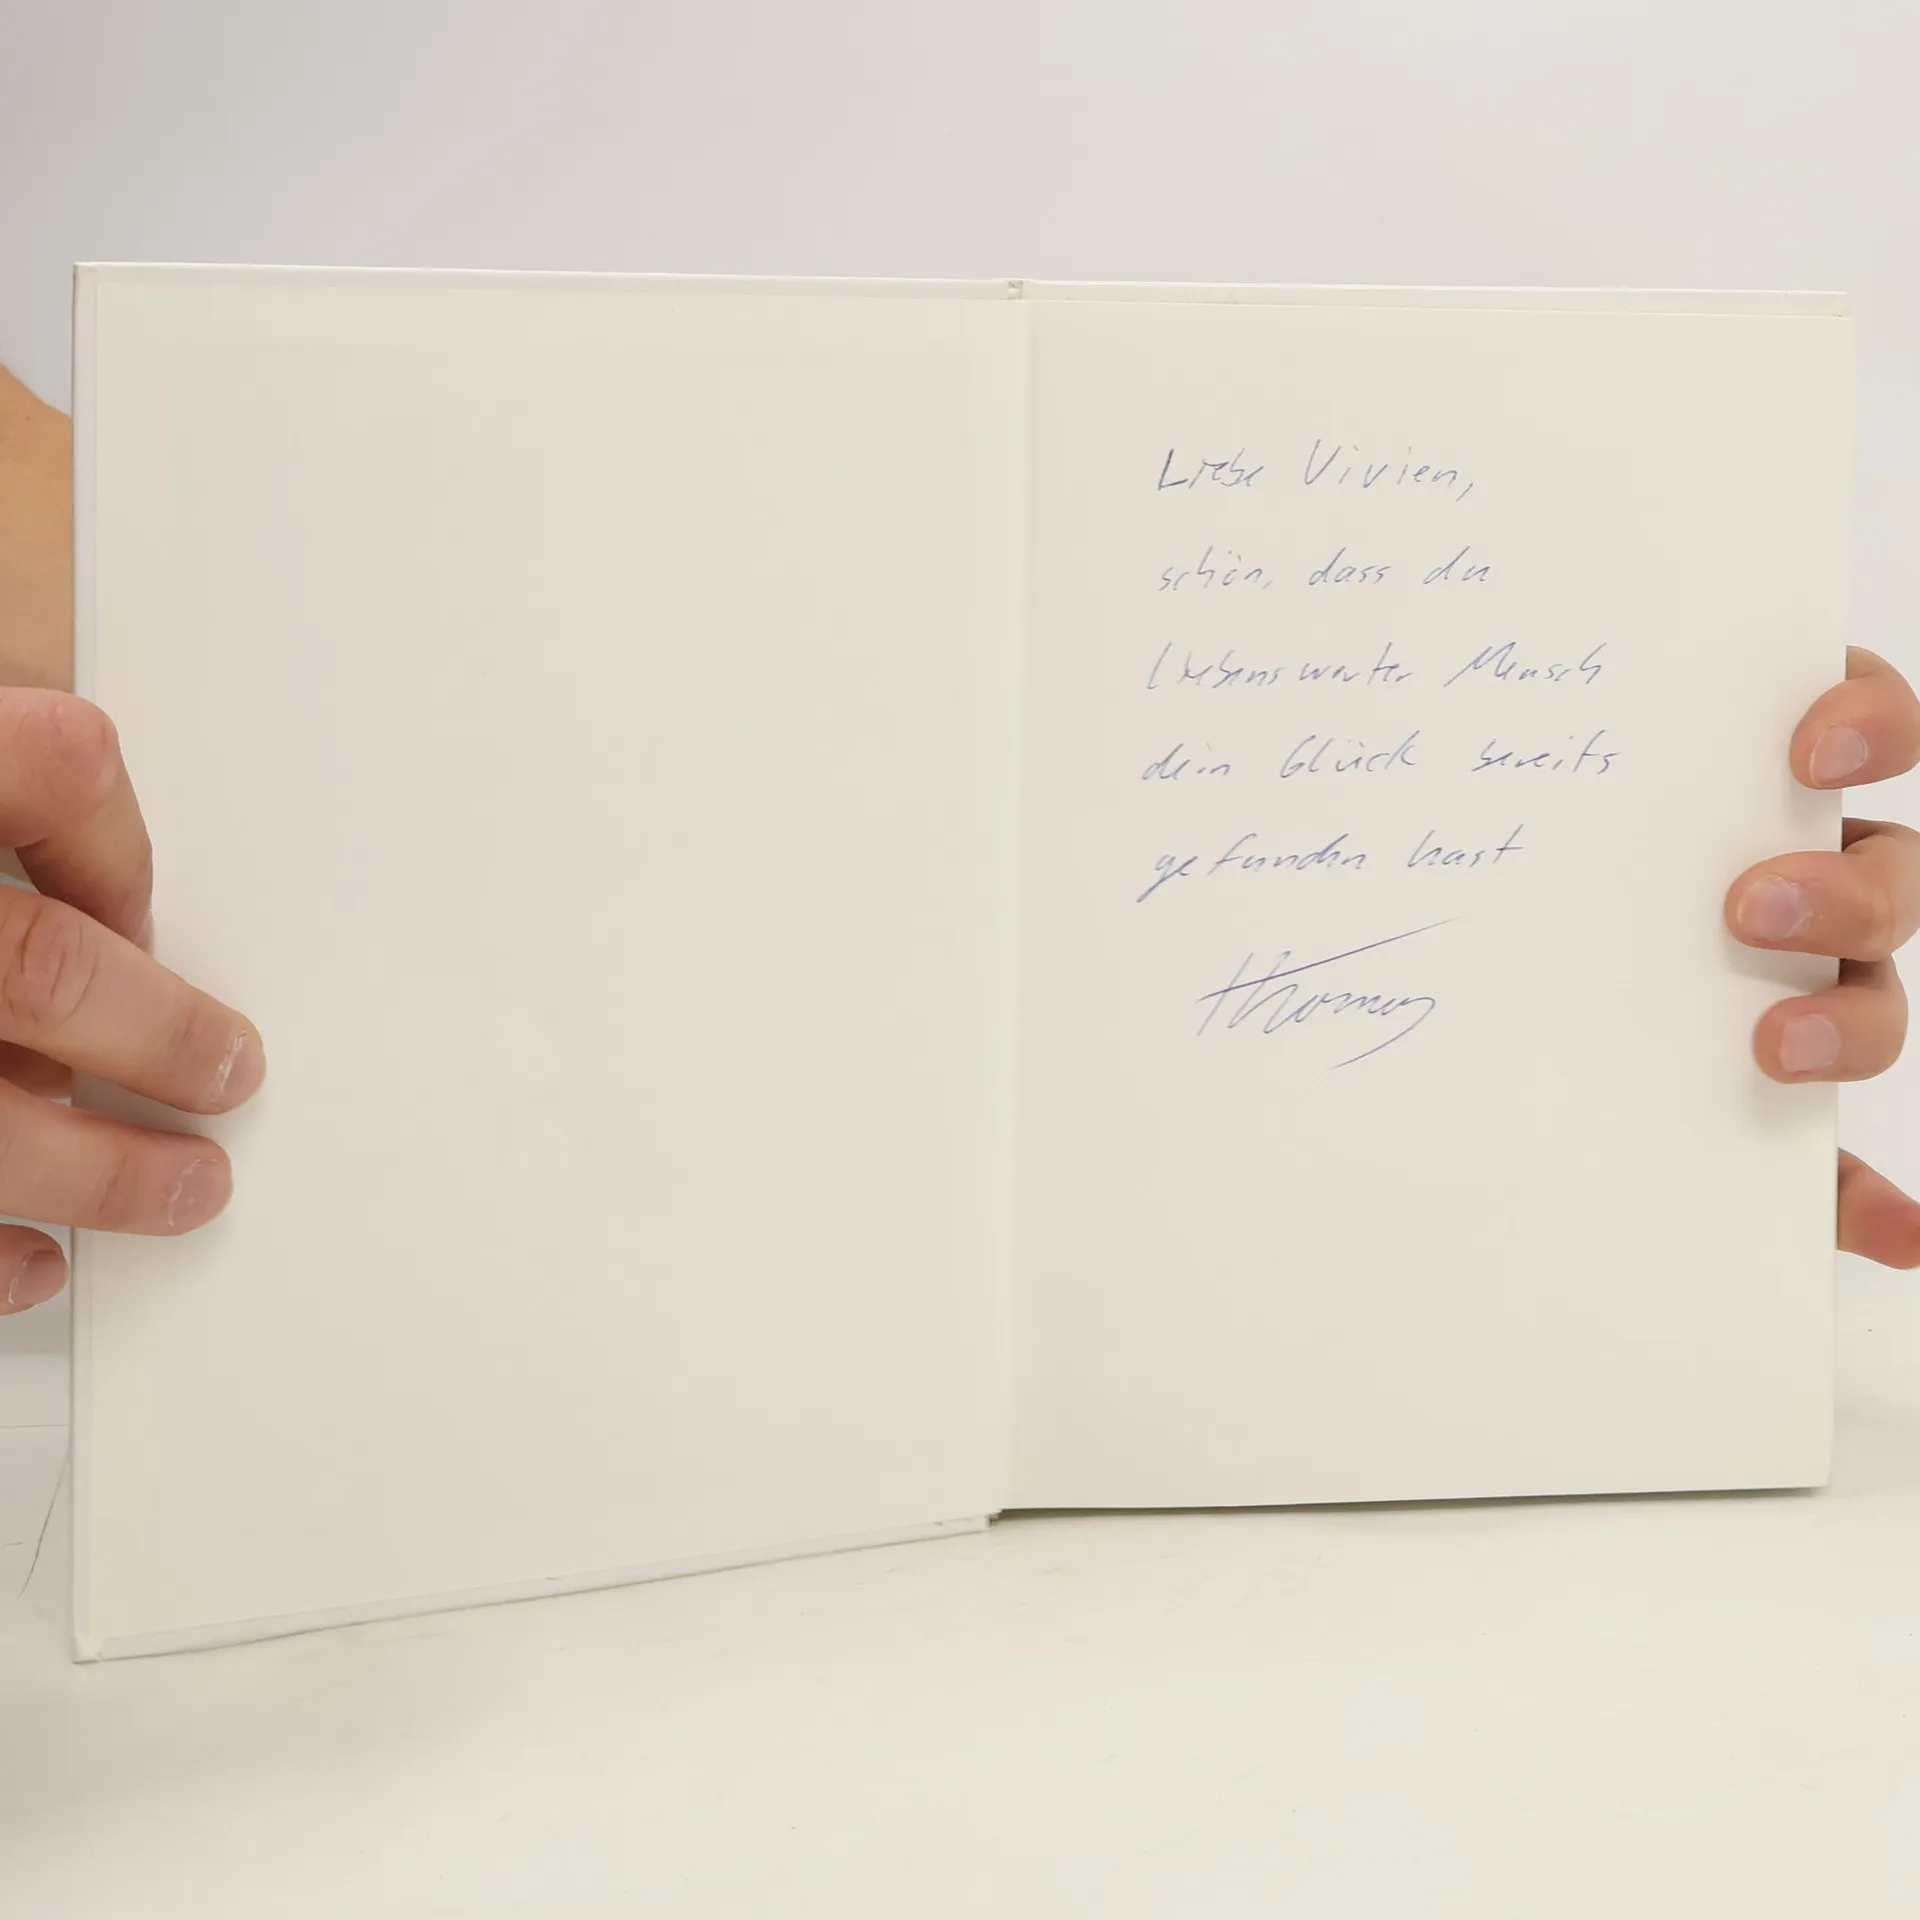 Liebe Vivien,
schön, dass du
liebenswerter Mensch
dein Glück bereits
gefunden hast
Thomas